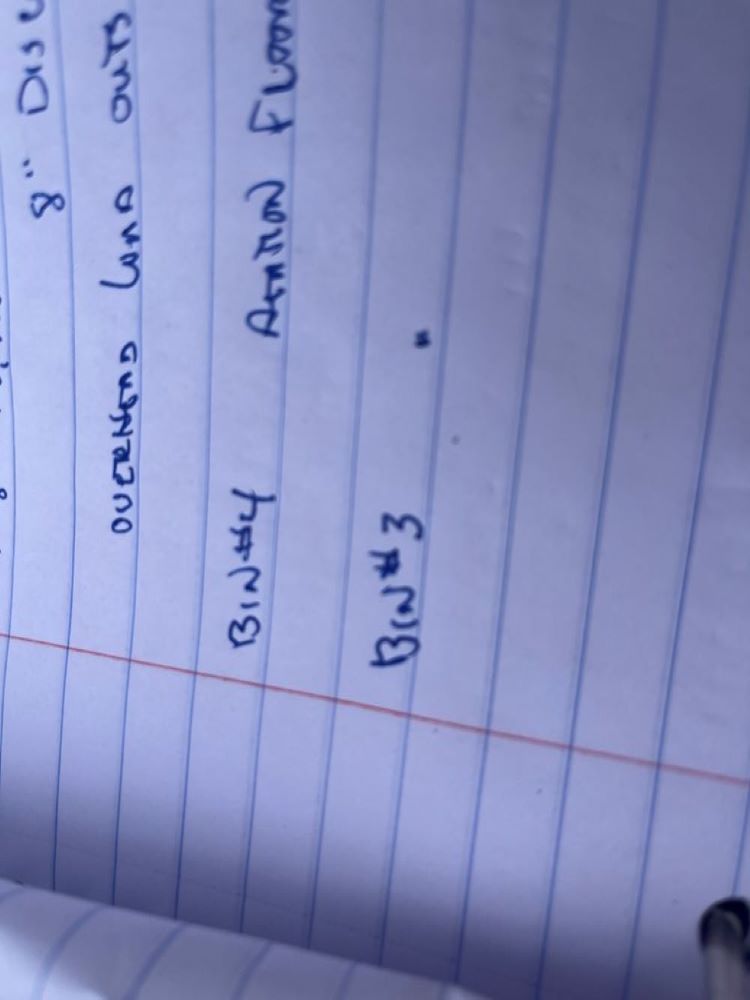 8" DIS
OVERHEAD LOAD OUTS
BIN #4 AERATION FLOOR
BIN #3 "